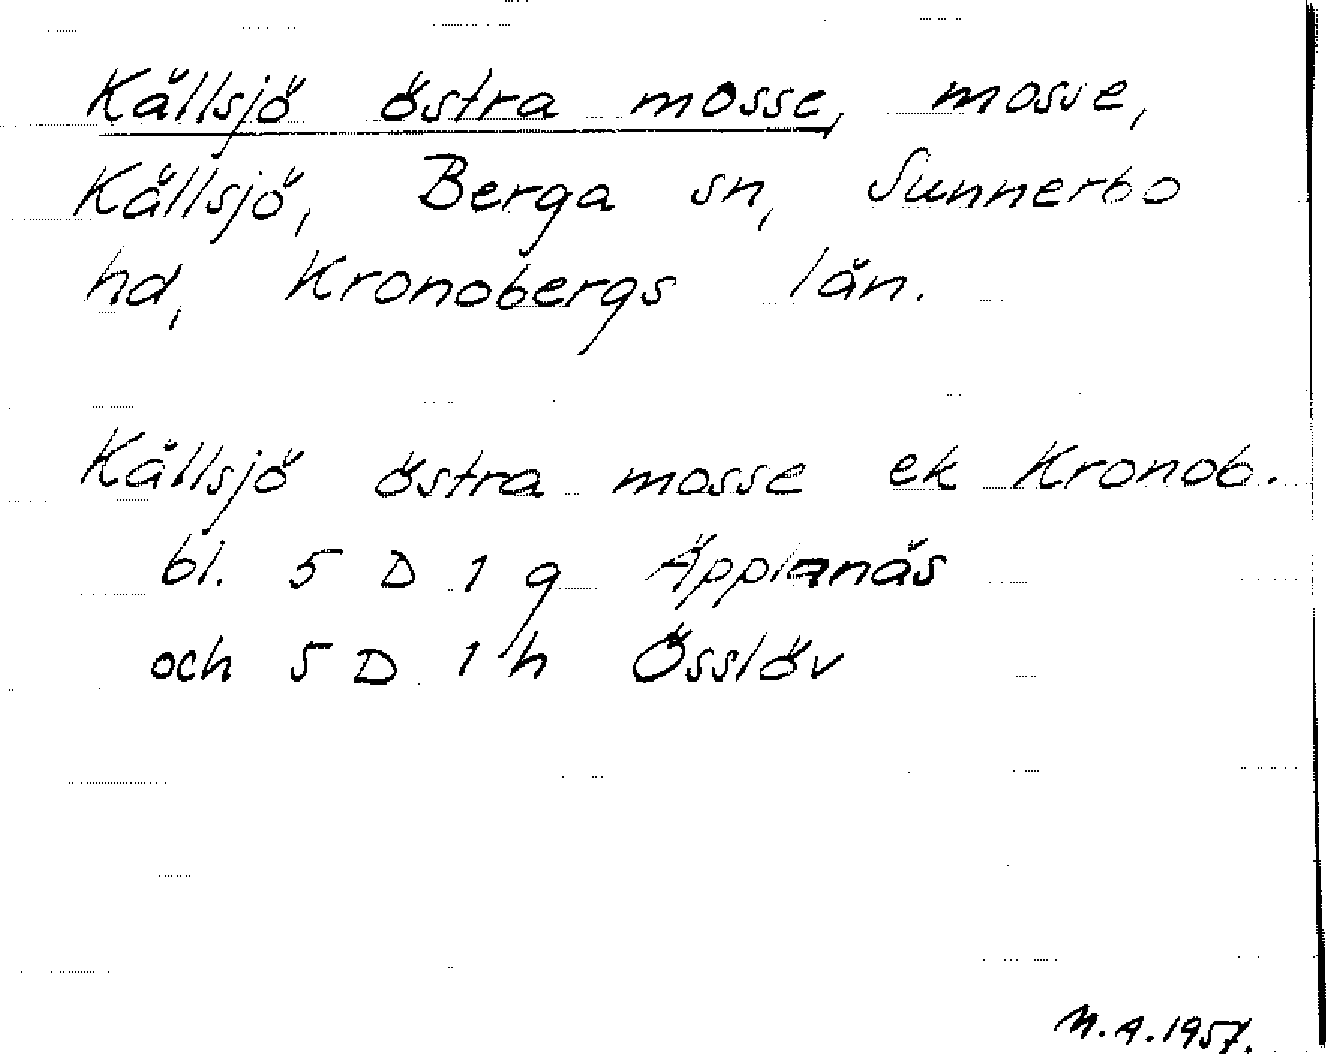 Källsjö östra mosse, mosse,
Källsjö, Berga sn, Sunnerbo
hd, Kronobergs län.
Källsjö östra mosse ek Kronob.
bl. 5 D 1 g Äpplanäs
och 5 D 1 h Össlöv
M.A.1957.